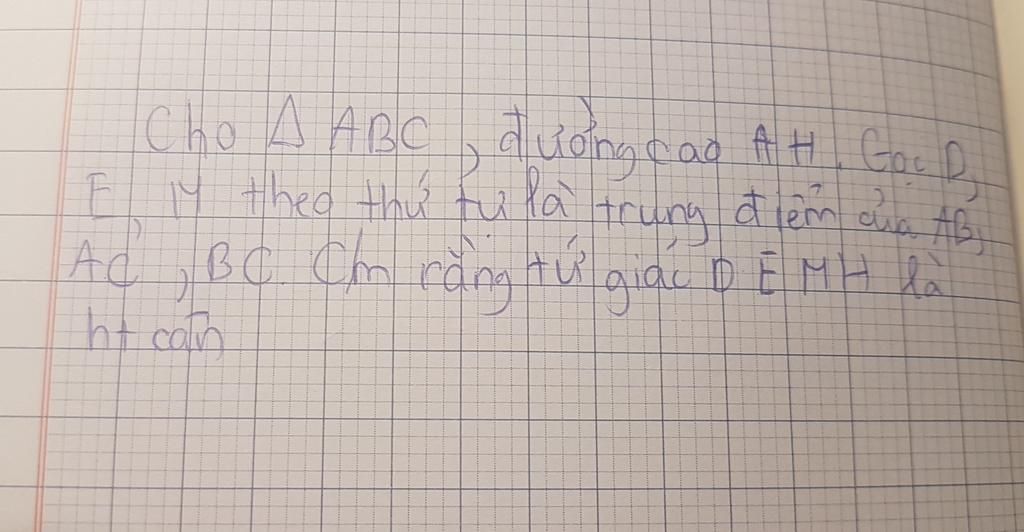 Cho Δ ABC, đường cao AH. Goc D,
E, M theo thứ tự là trung điểm của AB,
AC, BC. Cm rằng tứ giác DEMH là
ht cân